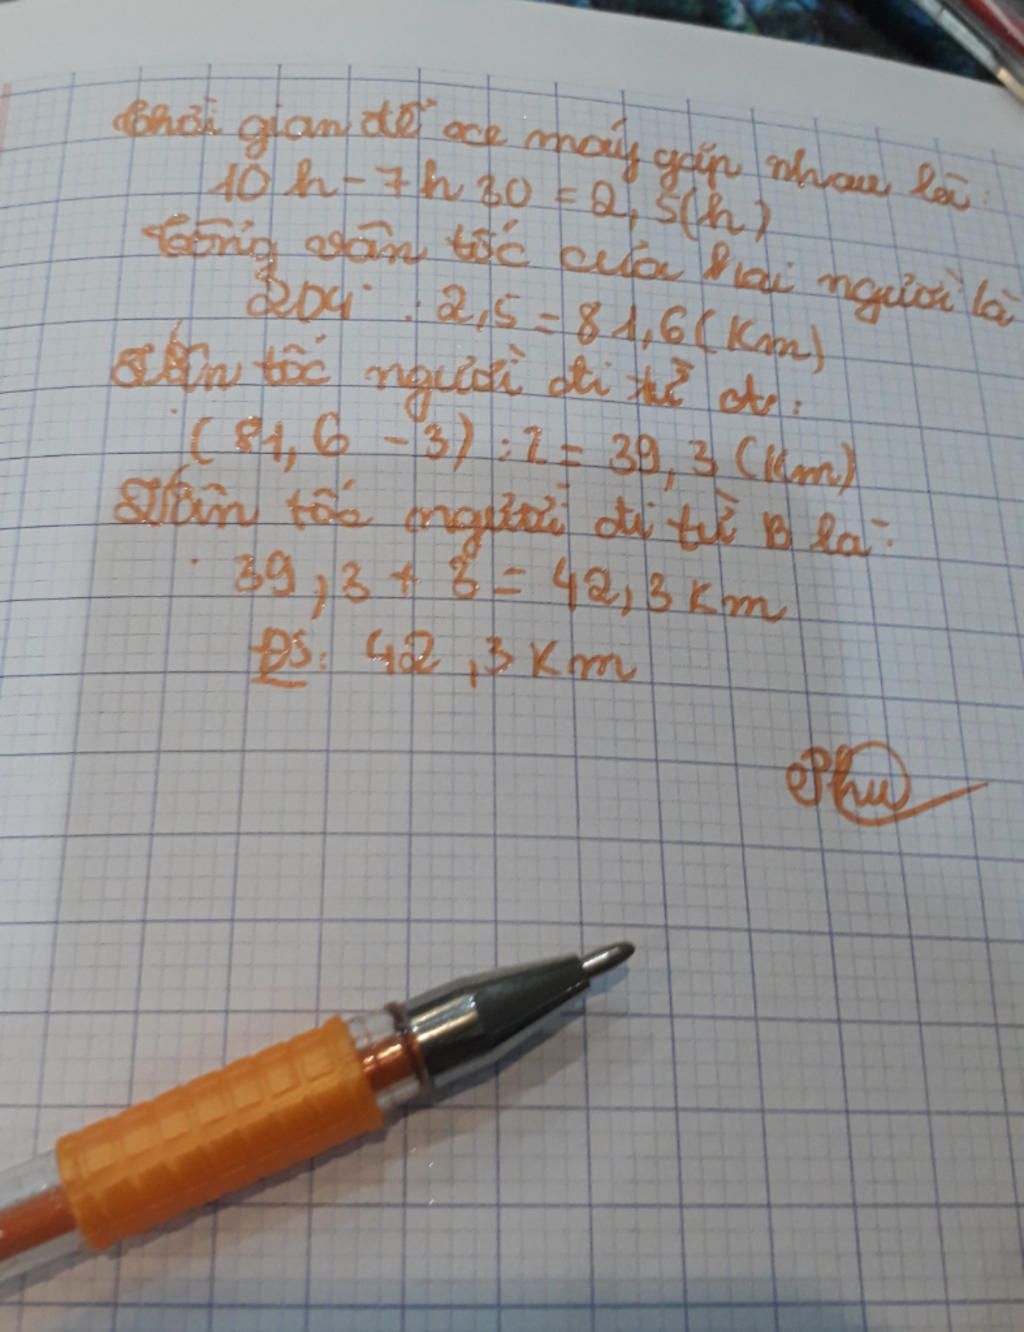 Thời gian để xe máy gặp nhau là:
10h - 7h30 = 2,5(h)
Tổng vận tốc của hai người là
204 : 2,5 = 81,6(Km)
Vận tốc người đi từ A:
(81,6 - 3) : 2 = 39,3 (Km)
Vận tốc người đi từ B là:
39,3 + 3 = 42,3 Km
ĐS: 42,3 Km
Phu